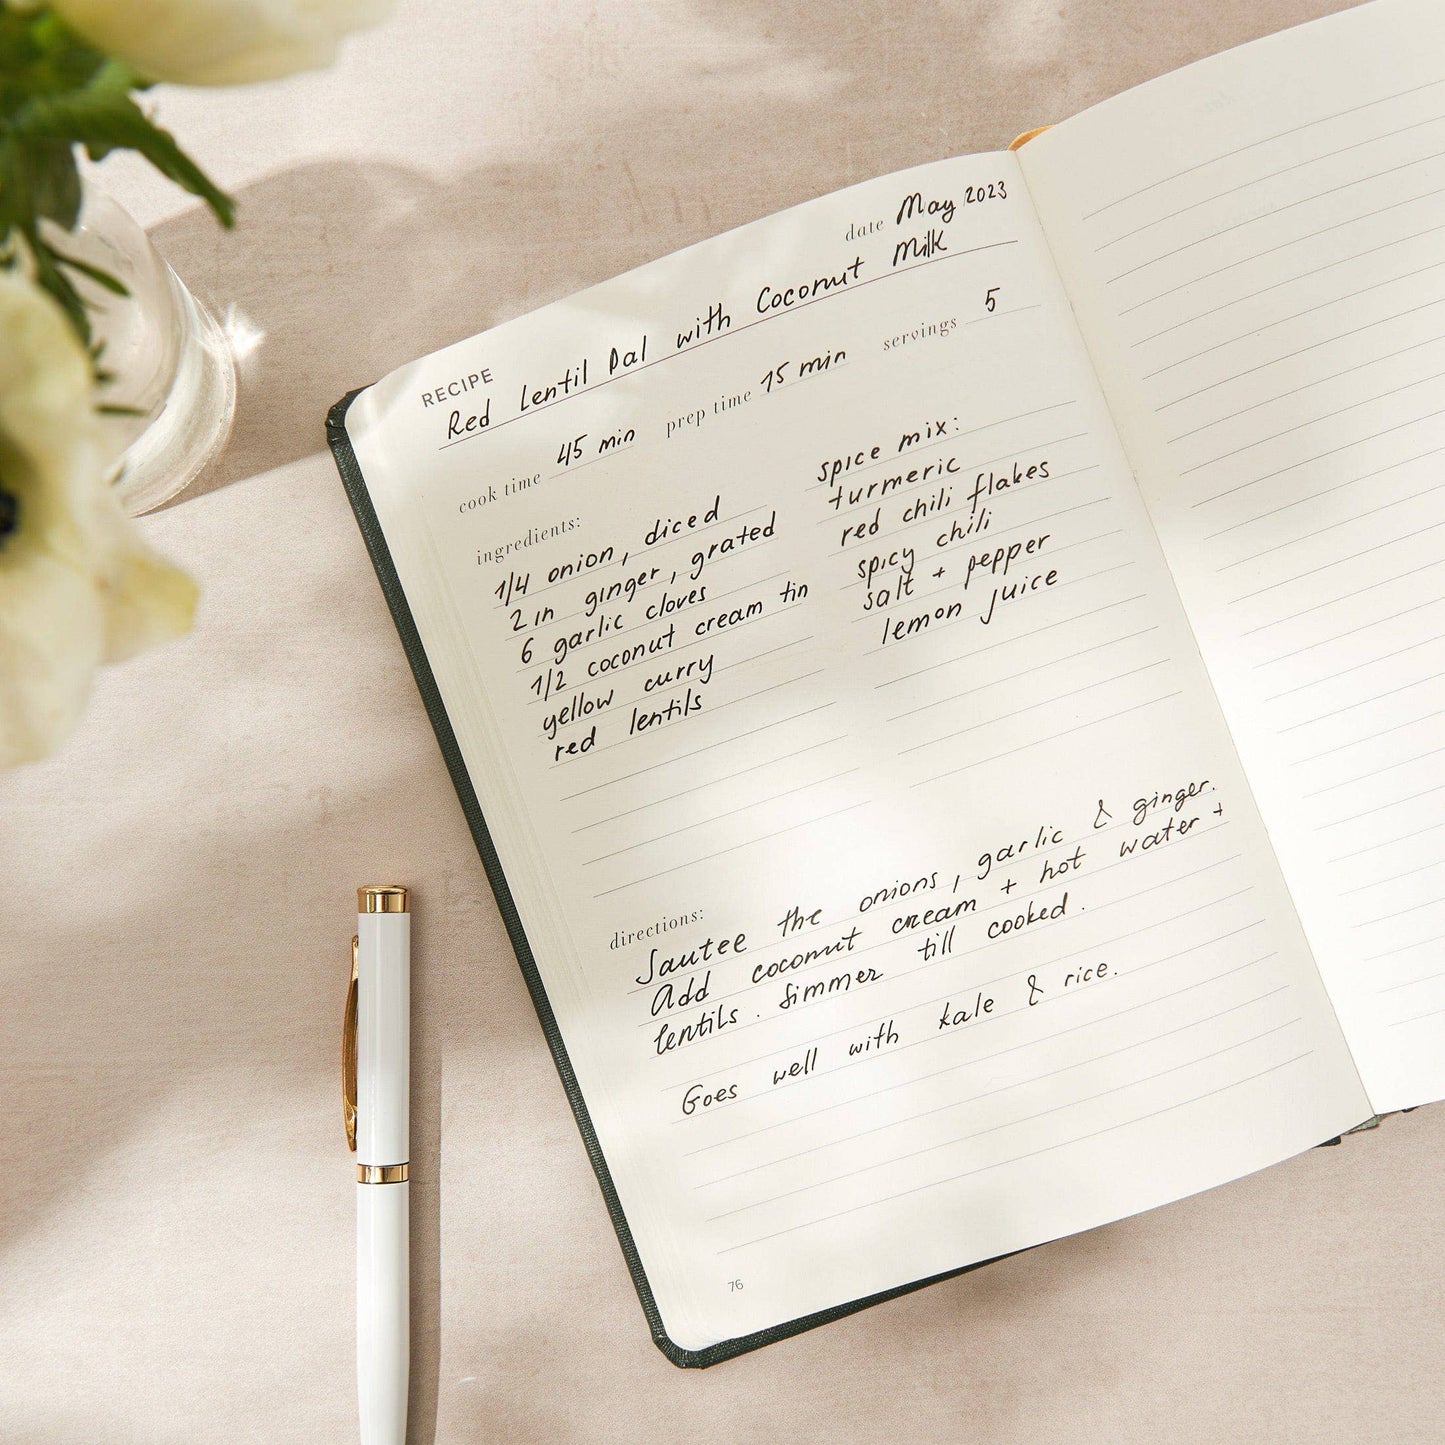 date May 2023
RECIPE
Red Lentil Dal with Coconut Milk
cook time 45 min prep time 15 min servings 5
ingredients:
1/4 onion, diced
2 in ginger, grated
6 garlic cloves
1/2 coconut cream tin
yellow curry
red lentils
spice mix:
turmeric
red chili flakes
spicy chili
salt + pepper
lemon juice
directions:
Sautee the onions, garlic & ginger.
Add coconut cream + hot water +
lentils. Simmer till cooked.
Goes well with kale & rice.
76